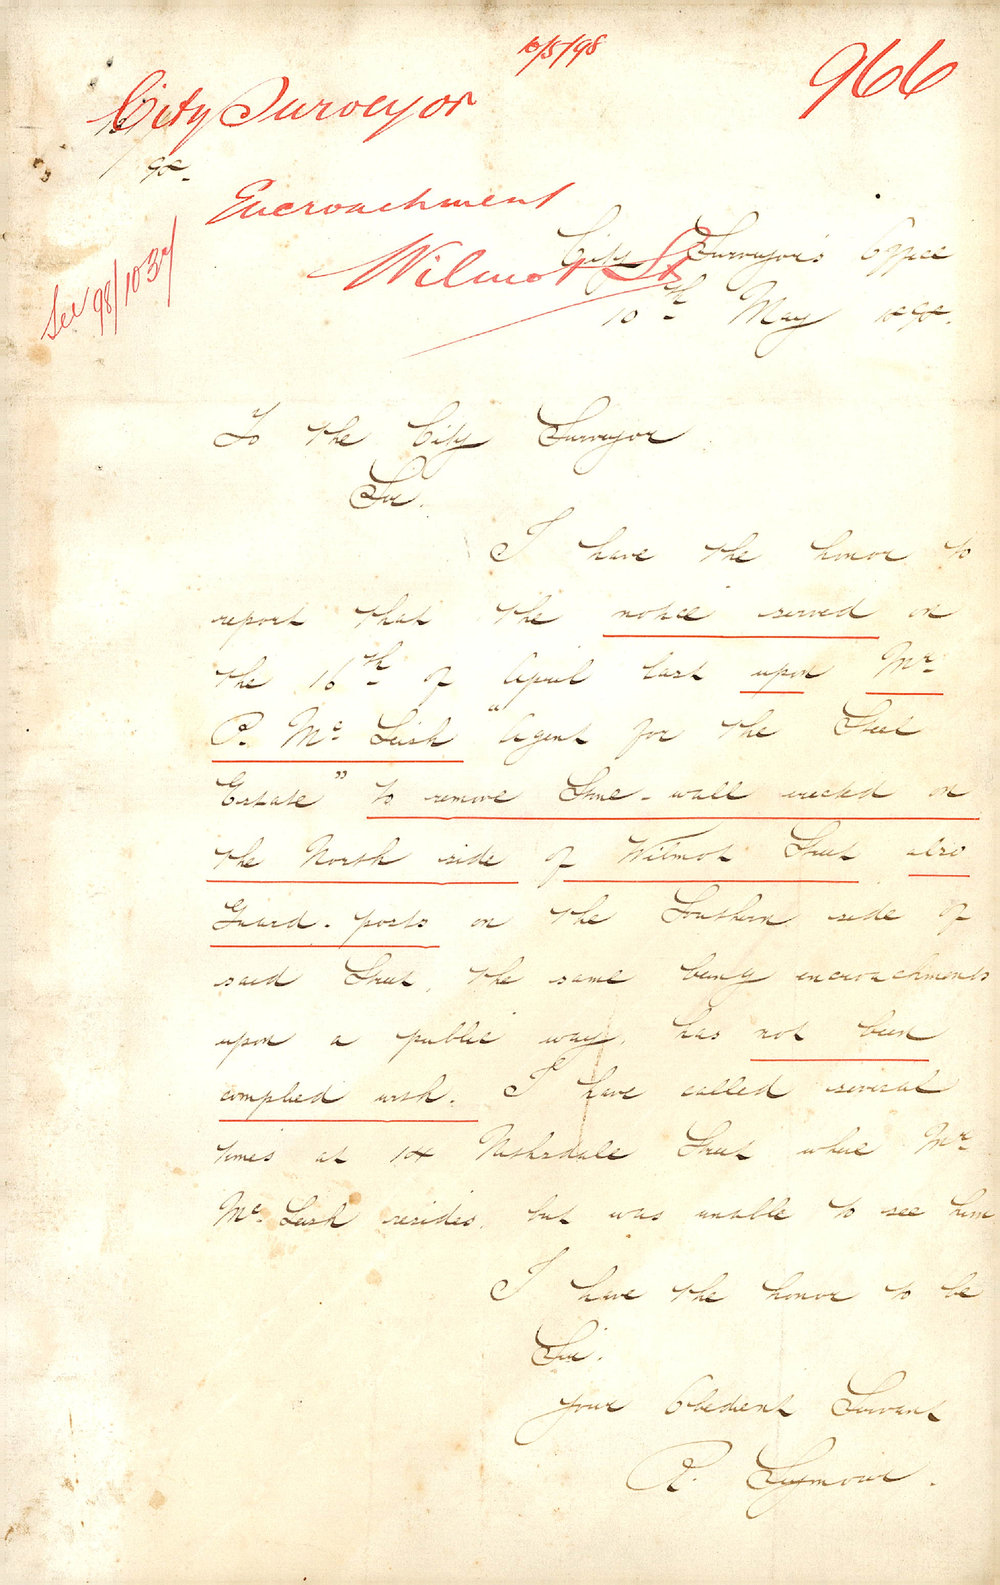 10/5/98
966
City Surveyor
Encroachment
Wilmot St
See 98/1037
City Surveyor's Office
10th May 1898.
To the City Surveyor
Sir.
I have the honor to
report that the notice served on
the 16th of April last upon Mr
P. Mc Leish "Agent for the Steel
Estate" to remove Stone-wall erected on
the North side of Wilmot Street also
Guard-posts on the Southern side of
said Street, the same being encroachments
upon a public way, has not been
complied with. I have called several
times at 14 Nithsdale Street where Mr
Mc Leish resides, but was unable to see him
I have the honor to be
Sir.
Your Obedient Servant
R. Seymour.